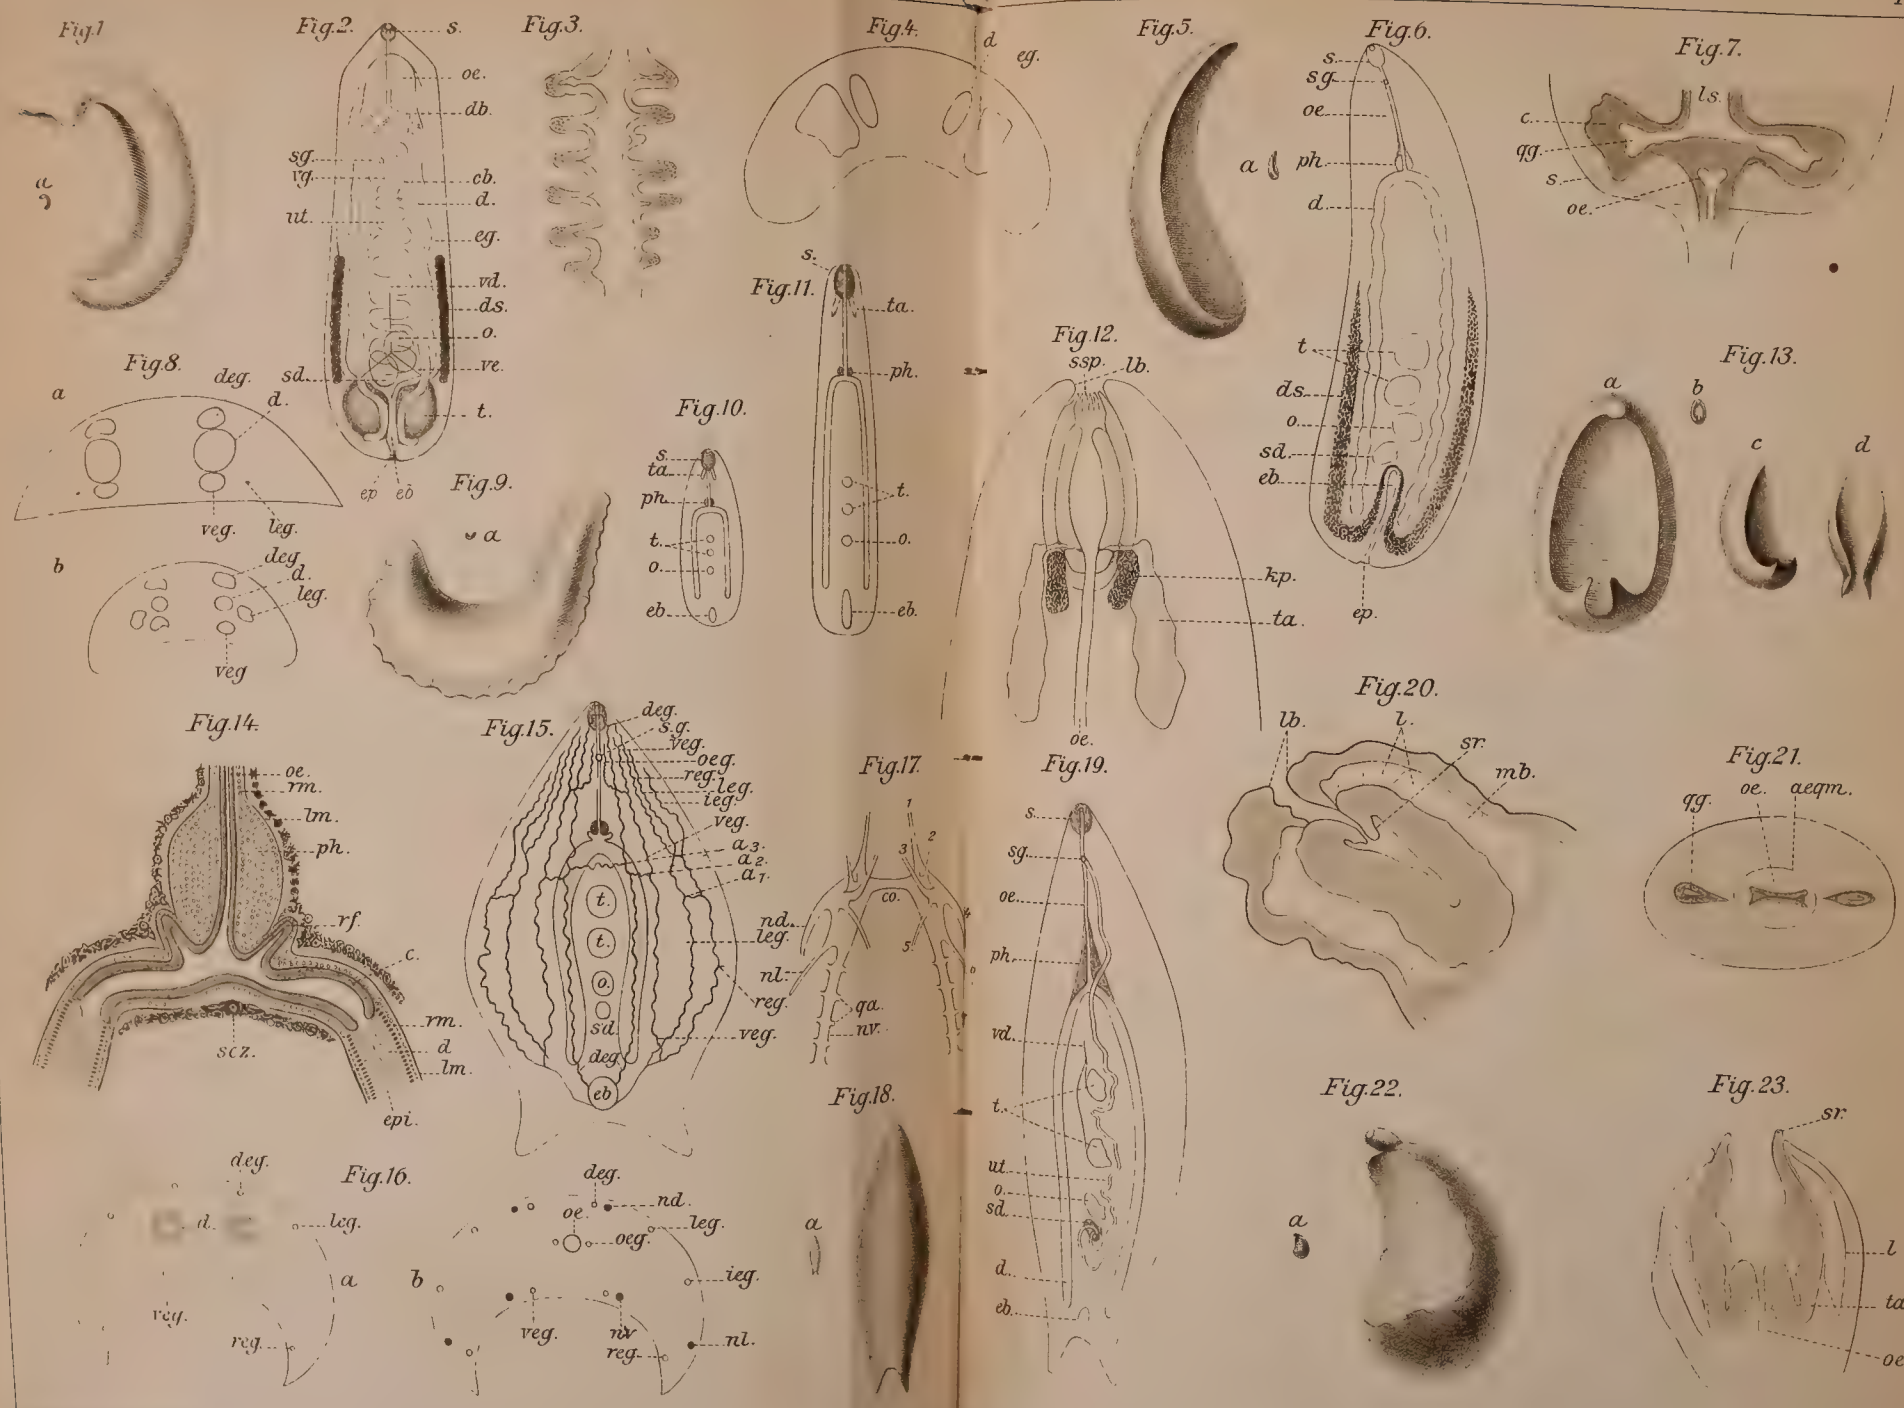 Fig.1
a
Fig.2.
s.
oe.
db.
sg.
vg.
cb.
d.
ut.
eg.
vd.
ds.
o.
sd.
ve.
t.
ep eb
Fig.3.
Fig.4.
d
eg.
Fig.5.
a
Fig.6.
s.
sg.
oe
ph.
d.
t.
ds.
o.
sd.
eb.
ep.
Fig.7.
ls.
c.
qg.
s.
oe.
Fig.8.
a
deg.
d.
veg.
leg.
b
deg
d.
leg.
veg
Fig.9.
a
Fig.10.
s.
ta.
ph.
t.
o.
eb.
Fig.11.
s.
ta.
ph.
t.
o.
eb.
Fig.12.
ssp.
lb.
kp.
ta.
oe.
Fig.13.
a
b
c
d
Fig.14.
oe.
rm.
lm.
ph.
rf.
c.
rm.
d
lm.
scz.
epi.
Fig.15.
deg.
s.g.
veg.
oeg.
reg.
leg.
ieg.
veg.
a3.
a2.
a1.
t.
t.
leg.
o.
reg.
sd.
veg.
deg.
eb
Fig.16.
deg.
d.
leg.
a
veg.
reg.
b
deg.
nd
oe.
leg.
oeg.
ieg.
veg.
nv
reg.
nl.
Fig.17.
1
2
3
co.
4
nd.
5.
nl.
ga.
nv.
Fig.18.
a
Fig.19.
s.
sg.
oe.
ph.
vd.
t.
ut.
o.
sd.
d.
eb.
Fig.20.
lb.
l.
sr.
mb.
Fig.21.
qg.
oe.
aeqm.
Fig.22.
a
Fig.23.
sr.
l
ta
oe